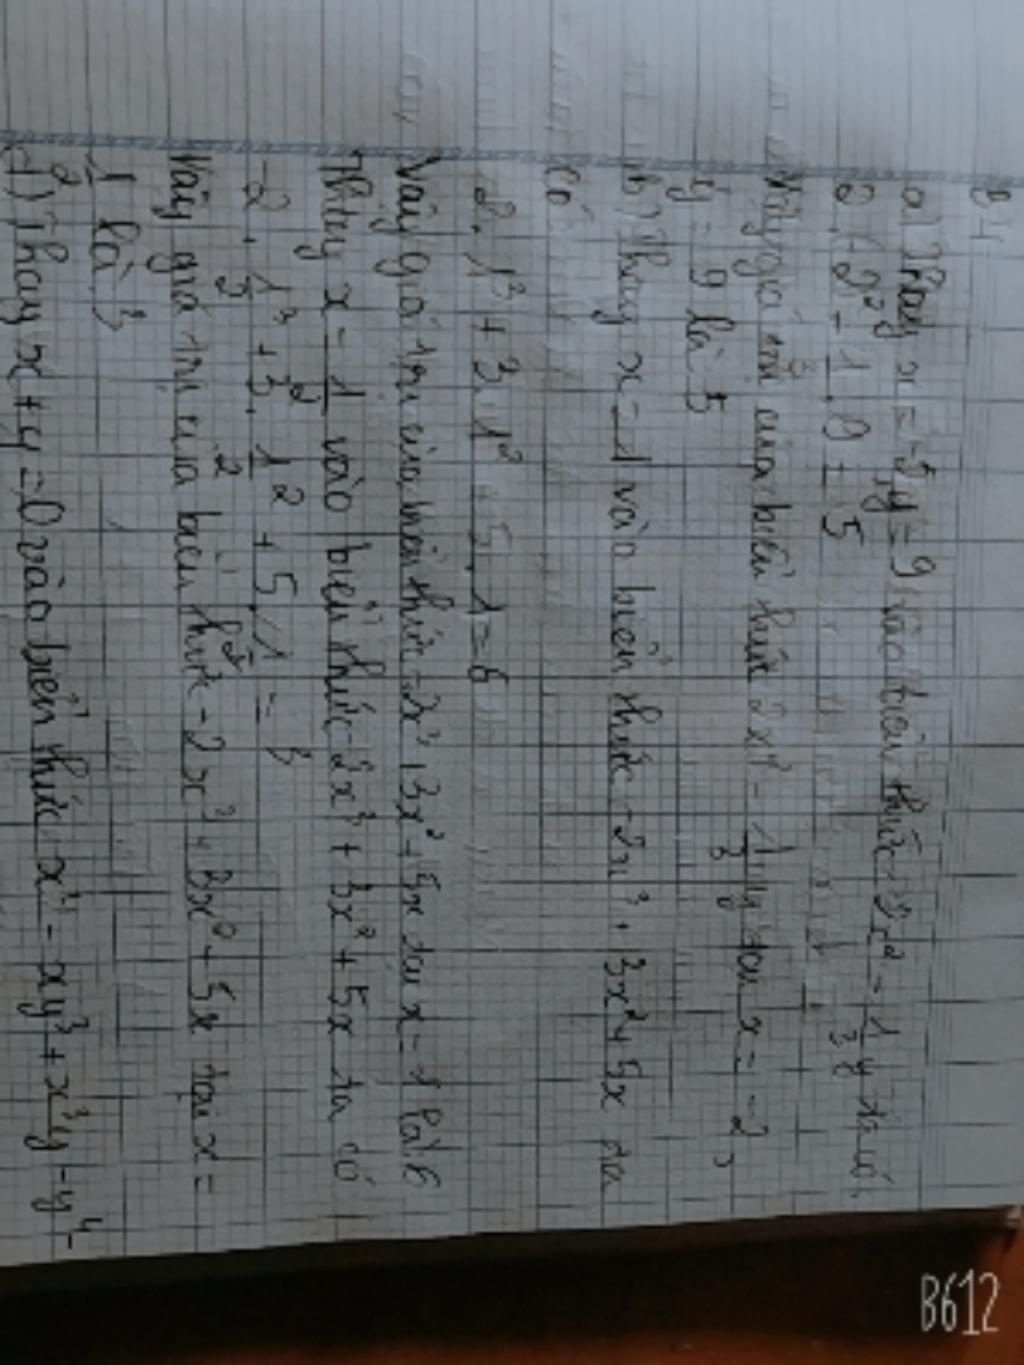 B4
a) Thay x = -2, y = 9 vào biểu thức 2x² - 1/3 y ta có
2.(-2)² - 1/3 . 9 = 5
Vậy giá trị của biểu thức 2x² - 1/3 y tại x = -2,
y = 9 là 5
b) Thay x = 1 vào biểu thức -2x³ + 3x² + 5x ta
có
-2. 1³ + 3. 1² + 5. 1 = 6
Vậy giá trị của biểu thức -2x³ + 3x² + 5x tại x = 1 là 6
Thay x = 1/2 vào biểu thức -2x³ + 3x² + 5x ta có
-2. 1/2³ + 3. 1/2² + 5. 1/2 = 3
Vậy giá trị của biểu thức -2x³ + 3x² + 5x tại x =
1/2 là 3
d) Thay x + y = 0 vào biểu thức x⁴ - xy³ + x³y - y⁴
B612